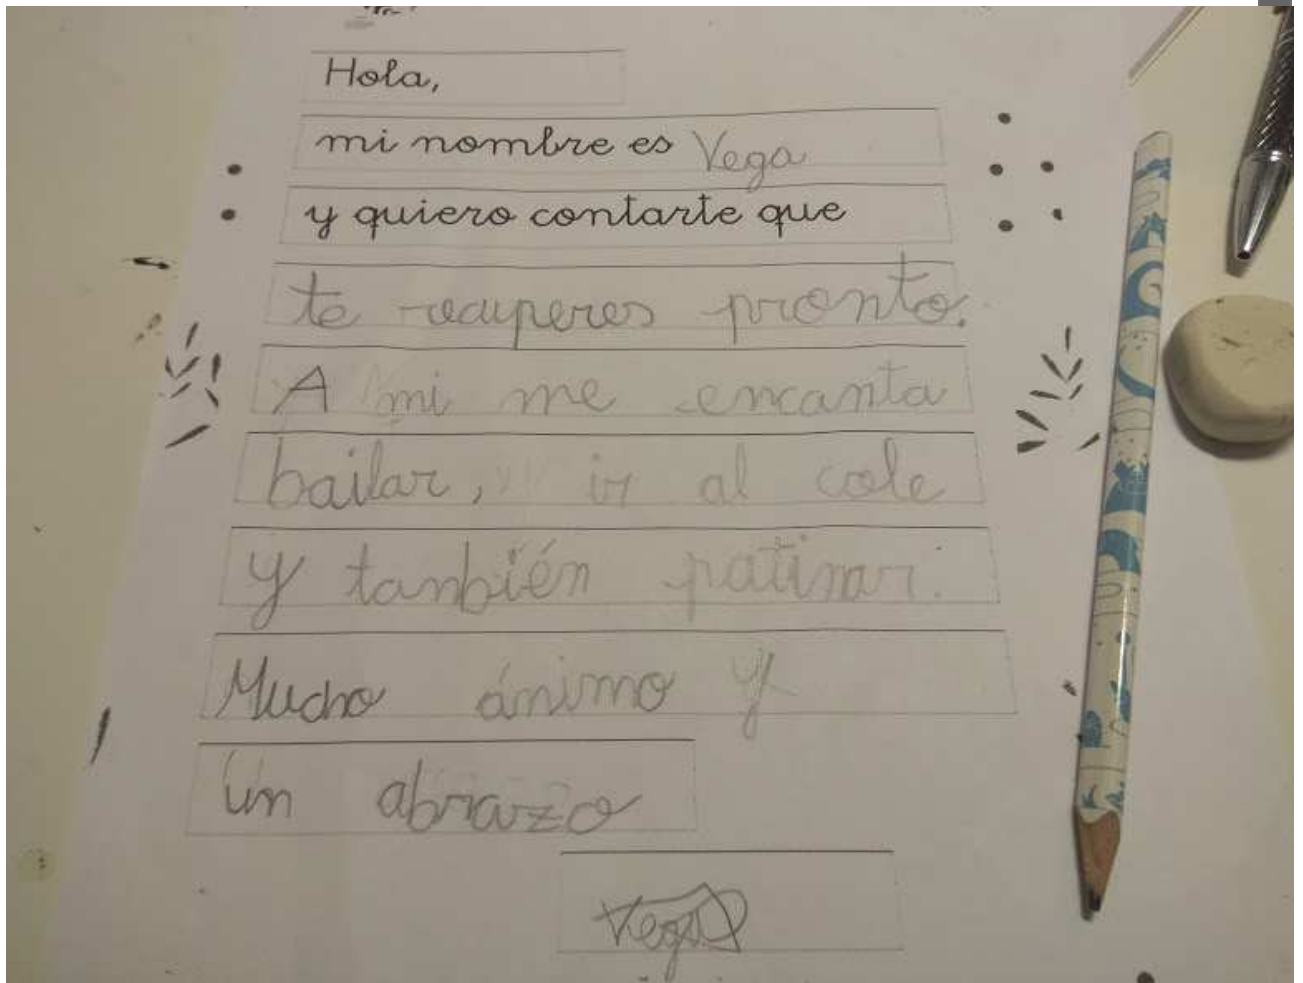 Hola,
mi nombre es Vega
y quiero contarte que
te recuperes pronto.
A mi me encanta
bailar, ir al cole
y también patinar.
Mucho ánimo y
un abrazo
Vega